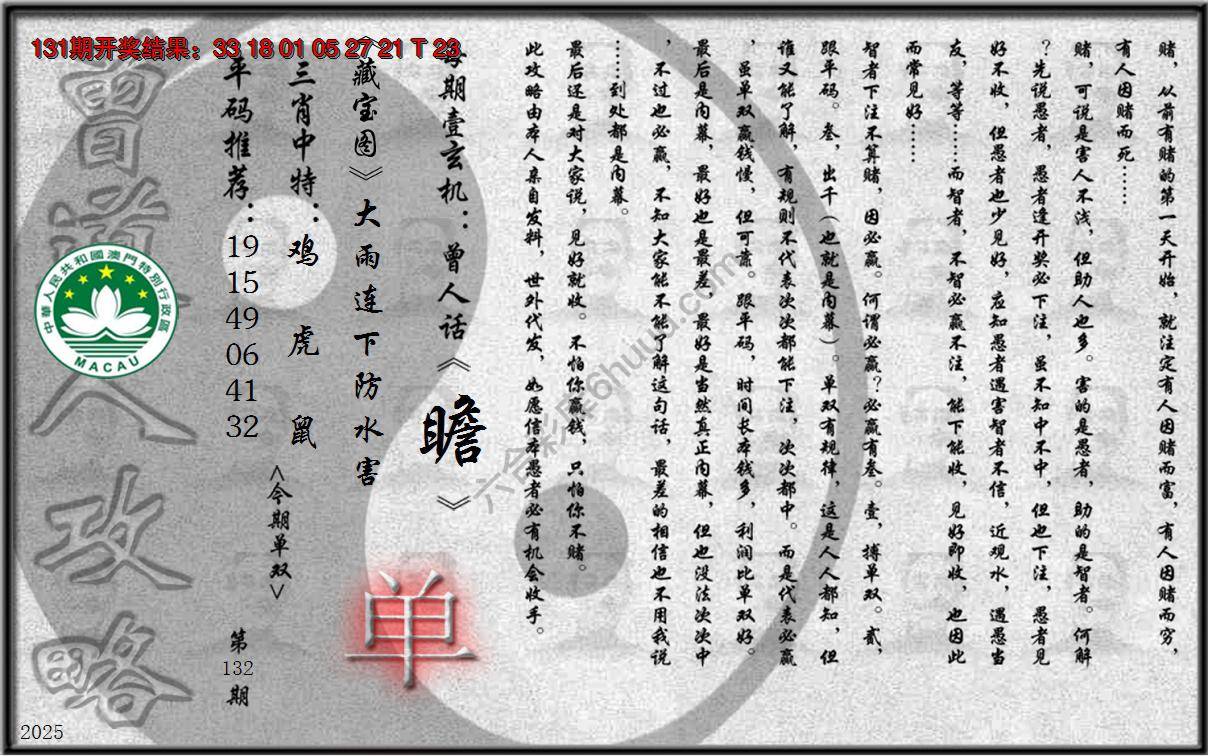 131期开奖结果：33 18 01 05 27 21 T 23
赌，从前有赌的第一天开始，就注定有人因赌而富，有人因赌而穷，
有人因赌而死……
赌，可说是害人不浅，但助人也多。害的是愚者，助的是智者。何解
？先说愚者，愚者逢开奖必下注，虽不知中不中，但也下注，愚者见
好不收，但愚者也少见好，应知愚者遇害智者不信，近观水，遇愚当
友，等等……而智者，不智必赢不注，能下能收，见好即收，也因此
而常见好……
智者下注不算赌，因必赢。何谓必赢？必赢有叁。壹，搏单双。贰，
跟平码。叁，出千（也就是内幕）。单双有规律，这是人人都知，但
谁又能了解，有规则不代表次次都能下注，次次都中。而是代表必赢
，虽单双赢钱慢，但可靠。跟平码，时间长本钱多，利润比单双好。
最后是内幕，最好也是最差，最好是当然真正内幕，但也没法次次中
，不过也必赢，不知大家能不能了解这句话，最差的相信也不用我说
……到处都是内幕。
最后还是对大家说，见好就收。不怕你赢钱，只怕你不赌。
此攻略由本人亲自发料，世外代发，如愿信本愚者必有机会收手。
每期壹玄机：曾人话《瞻》
《藏宝图》大雨连下防水害
三肖中特：鸡 虎 鼠
平码推荐：19 15 49 06 41 32
<今期单双>
单
第132期
曾道人攻略
中華人民共和國澳門特別行政區
MACAU
六合彩库6huuu.com
2025